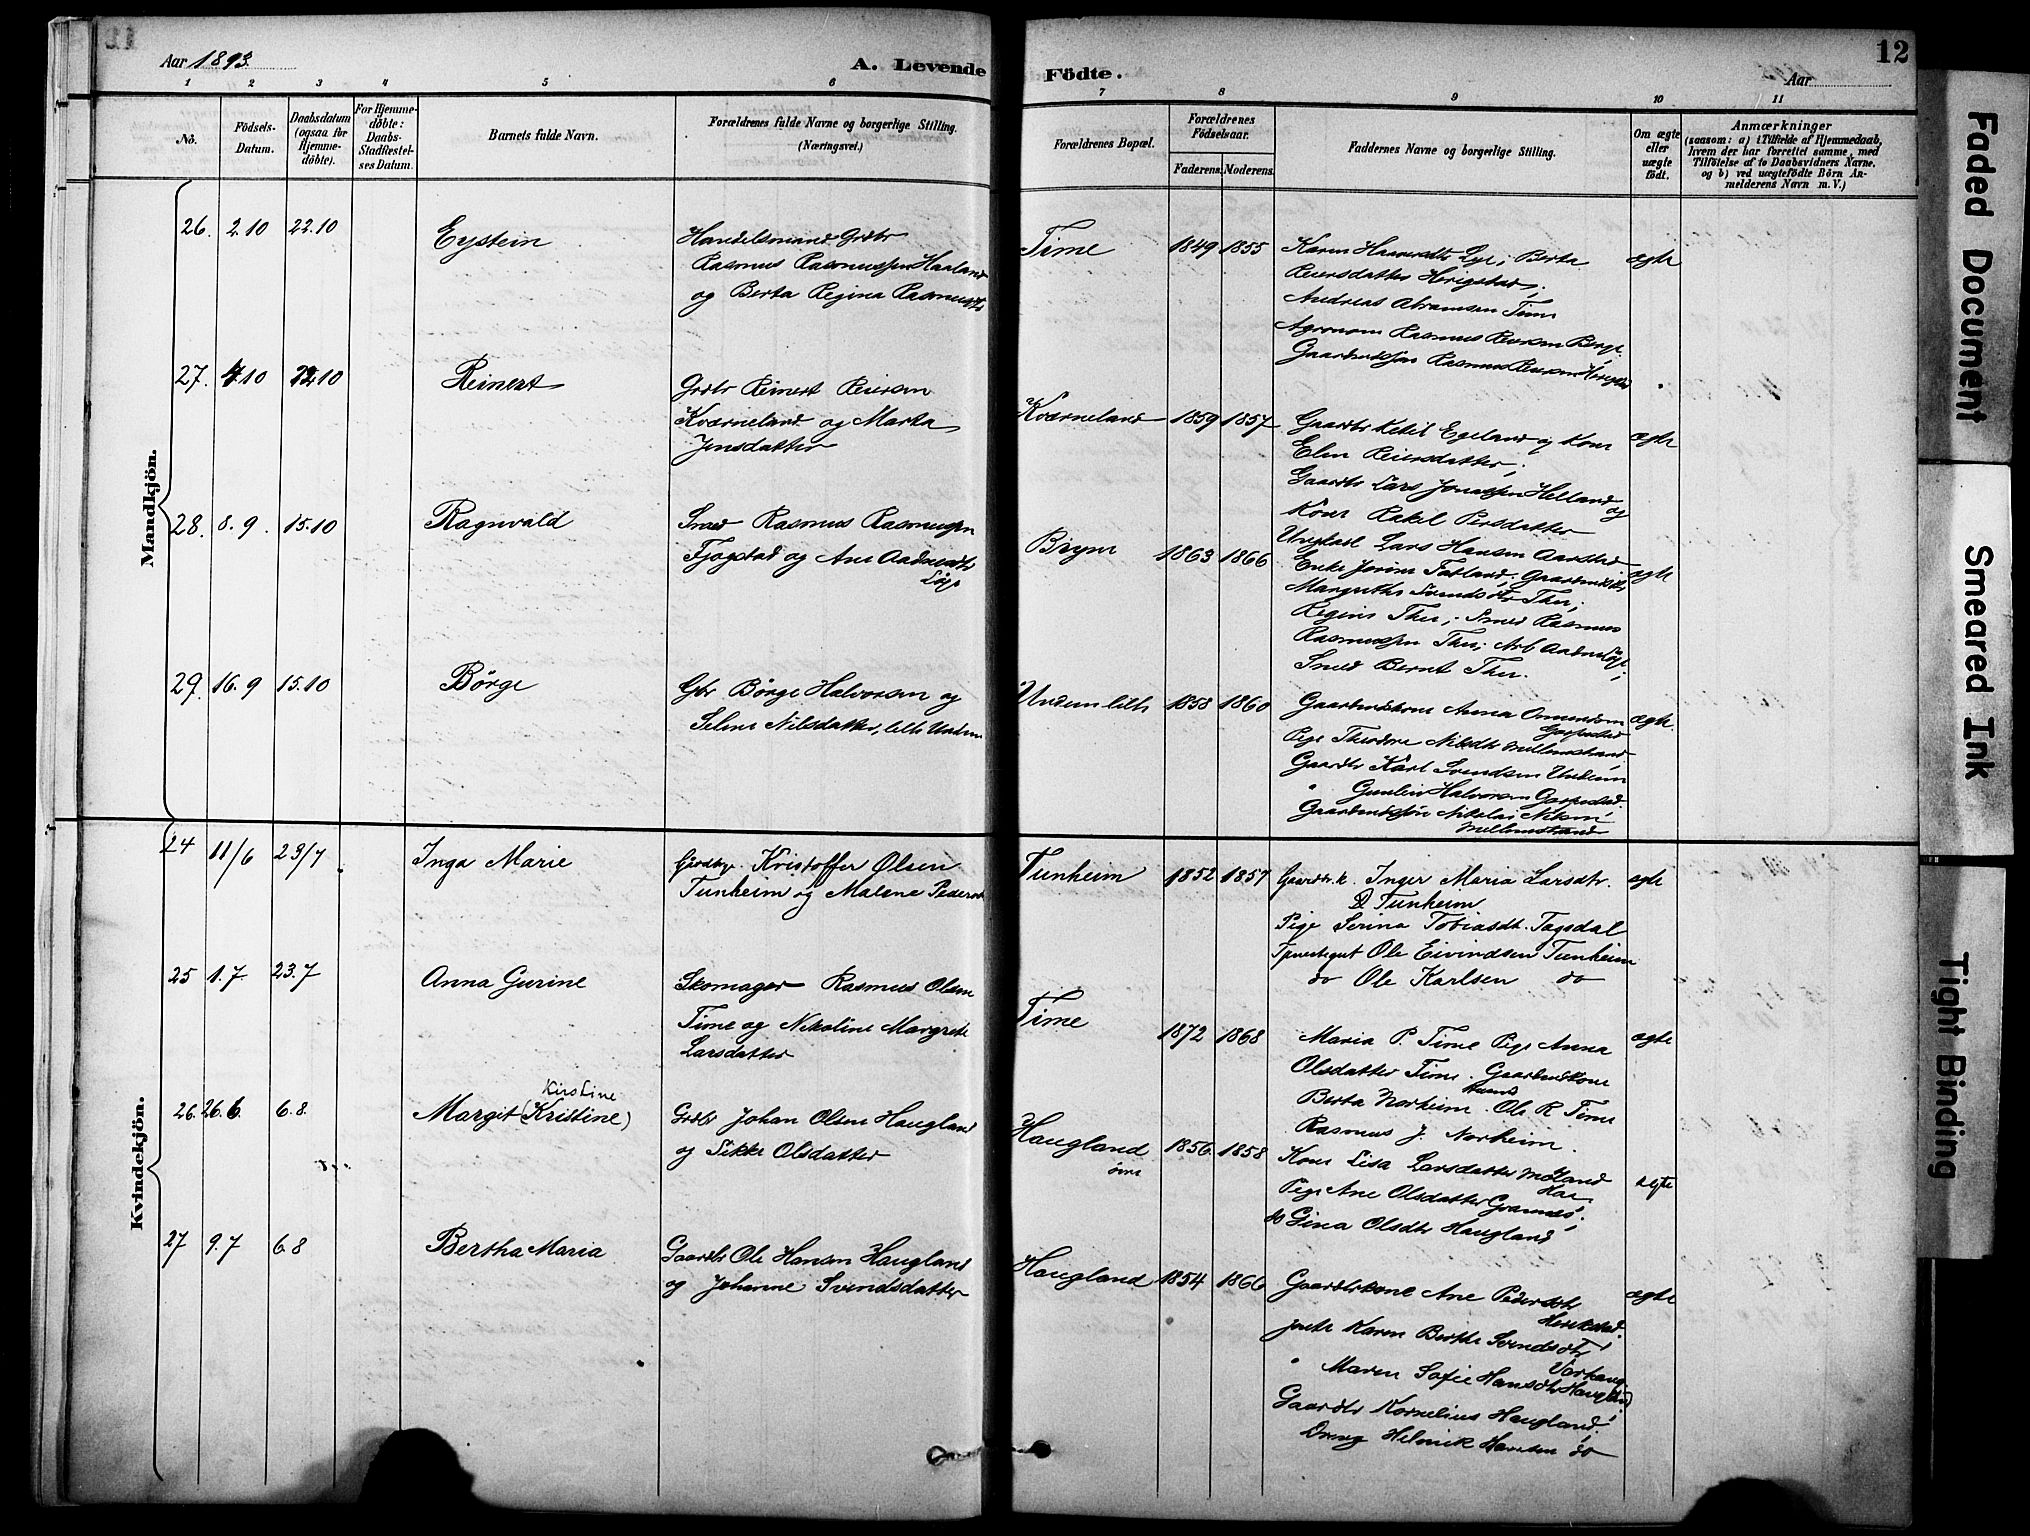 Aar 1893.
A. Levende Födte.
Aar
12
1 2 3 4 5 6 7 8 9 10 11
No.
Födsels-Datum.
Daabsdatum (ogsaa for Hjemmedöbte).
For Hjemmedöbte: Daabs-Stadfæstelses Datum.
Barnets fulde Navn.
Forældrenes fulde Navne og borgerlige Stilling.
(Næringsvei.)
Forældrenes Bopæl.
Forældrenes Födselsaar.
Faderens. Moderens.
Faddernes Navne og borgerlige Stilling.
Om ægte eller uægte födt.
Anmærkninger
(saasom: a) i Tilfælde af Hjemmedaab, hvem der har forrettet samme, med Tilföielse af to Daabsvidners Navne, og b) ved uægtefödte Börn Anmelderens Navn m. V.)
Mandkjön.
26. 2.10 22.10 Eystein
Handelsmand Grdbr
Rasmus Rasmussen Haaland
og Berta Regina Rasmusdtr
Time 1849 1855
Karen Haaversdtr Lye; Berta
Reiersdatter Herigstad;
Andreas Abramsen Time
Agronom Rasmus Reiersen Berge
Gaardmdssøn Rasmus Reiersen Herigstad
ægte
27. 4.10 22.10 Reinert
Grdbr Reinert Reiersen
Kværneland og Marta
Jensdatter
Kværneland 1859 1857
Gaardbr Ketil Egeland og Kone
Elen Reiersdatter;
Gaardbr Lars Jonassen Helland og
Kone Rakel Persdatter
ægte
28. 8.9. 15.10 Ragnvald
Smed Rasmus Rasmussen
Fjogstad og Ane Aadnesdtr
Løge
Bryne 1863 1866
Ungkarl Lars Hansen Aarstad
Enke Jorine Tatland; Gaardmdsdtr
Margrethe Svendsdtr Thu;
Regine Thu; Smed Rasmus
Rasmussen Thu; Arb Aadne Løge;
Smed Bernt Thu.
ægte
29. 16.9 15.10 Börge
Gbr Börge Halvorsen og
Selene Nilsdatter, lille Undem
Undem lille 1858 1860
Gaardmdskone Anna Omundsen
Gaspestad
Pige Theodore Nilsdtr Mellemstrand
Gaardbr Karl Svendsen Undem
" Gunlein Halvorsen Gaspestad
Gaardmdssøn Nikolai Nilsen
Mellemstrand
ægte.
Kvindekjön.
24 11/6 23/7 Inga Marie
Gaardbr. Kristoffer Olsen
Tunheim og Malene Pedersdt
Tunheim 1852 1857
Gaardbr.k. Inger Maria Larsdtr.
Tunheim
Pige Serina Tobiasdt. Tagsdal
Tjenestegut Ole Eivindsen Tunheim
do Ole Karlsen do
ægte
25 1.7 23.7 Anna Gurine
Skomager Rasmus Olsen
Time og Nikoline Margrete
Larsdatter
Time 1872 1868
Maria P. Time Pige Anna
Olsdatter Time. Gaardmdskone
Berta Norheim. Ole R. Time
Rasmus J. Norheim.
ægte
26 26.6 6.8. Margit (Kristine) Kirstine
Grdbr Johan Olsen Haugland
og Sikke Olsdatter
Haugland 1856. 1858
övre
Kone Lisa Larsdatter Möland
Haa
Pige Ane Olsdatter Grannes;
do Gina Olsdtr Haugland
ægte
27 9.7 6.8 Bertha Maria
Gaardbr Ole Hansen Haugland
og Johanne Svendsdatter
Haugland 1854 1866
Gaardbrkone Ane Pedersdtr
Herikstad
Jente Karen Berthe Svendsdtr
Varhaug
" Maren Sofie Hansdtr Haugland
Gaardbr Kornelius Haugland;
Dreng Helmik Hansen do
ægte
Faded Document
Smeared Ink
Tight Binding